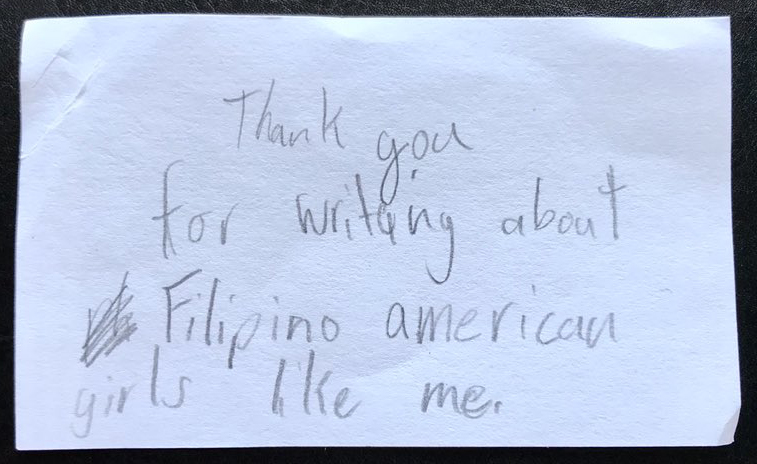 Thank you
for writing about
Filipino american
girls like me.